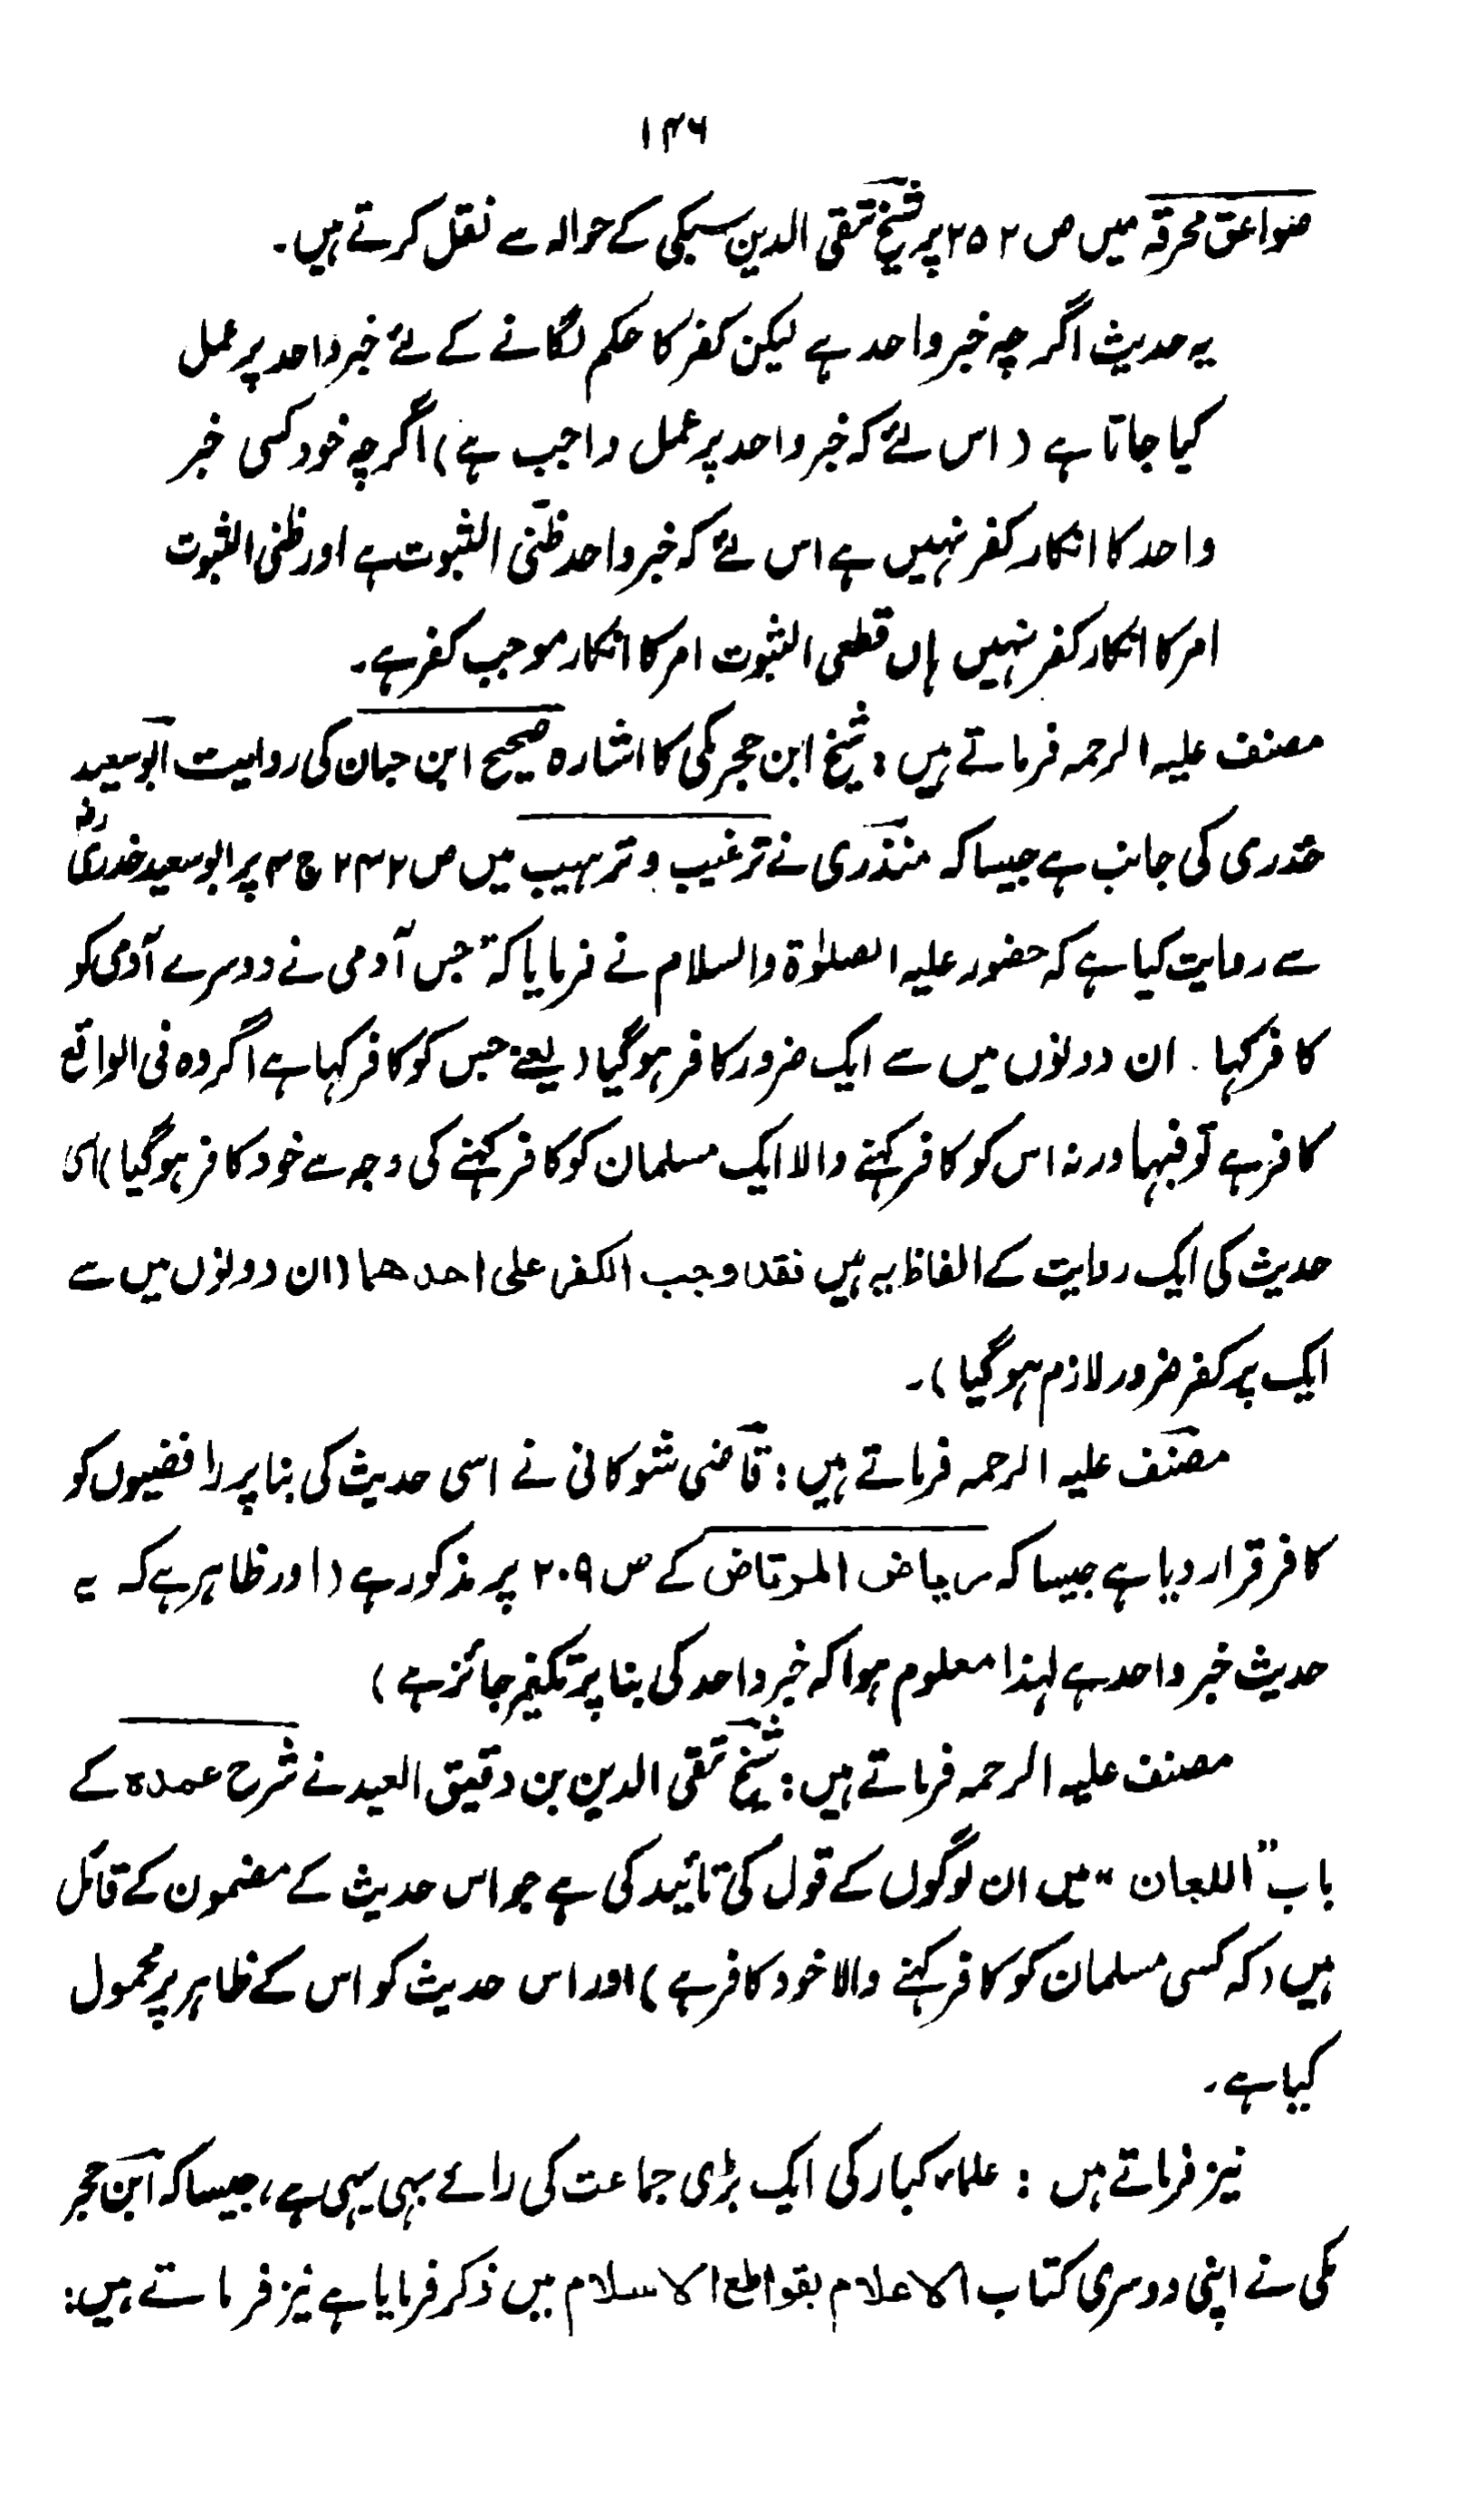 ۱۴۶
صواعق محرقہ میں ص ۲۵۲ پر شیخ تقی الدین سبکی کے حوالہ سے نقل کرتے ہیں۔
یہ حدیث اگرچہ خبر واحد ہے لیکن کفر کا حکم لگانے کے لئے خبر واحد پر عمل
کیا جاتا ہے (اس لئے کہ خبر واحد پر عمل واجب ہے) اگرچہ خود کسی خبر
واحد کا انکار کفر نہیں ہے اس لئے کہ خبر واحد ظنی الثبوت ہے اور ظنی الثبوت
امر کا انکار کفر نہیں ہاں قطعی الثبوت امر کا انکار موجب کفر ہے۔
مصنف علیہ الرحمہ فرماتے ہیں: شیخ ابن حجر مکی کا اشارہ صحیح ابن حبان کی روایت ابو سعید
خدری کی جانب ہے جیسا کہ منذری نے ترغیب و ترہیب میں ص ۲۴۲ ج ۴ پر ابو سعید خدریؓ
سے روایت کیا ہے کہ حضور علیہ الصلوٰۃ والسلام نے فرمایا کہ "جس آدمی نے دوسرے آدمی کو
کافر کہا۔ ان دونوں میں سے ایک ضرور کافر ہو گیا (یعنے جس کو کافر کہا ہے اگر وہ فی الواقع
کافر ہے تو فبہا ورنہ اس کو کافر کہنے والا ایک مسلمان کو کافر کہنے کی وجہ سے خود کافر ہو گیا) اسی
حدیث کی ایک روایت کے الفاظ یہ ہیں فقد وجب الکفر علی احدھما (ان دونوں میں سے
ایک پر کفر ضرور لازم ہو گیا)۔
مصنف علیہ الرحمہ فرماتے ہیں: قاضی شوکانی نے اسی حدیث کی بنا پر رافضیوں کو
کافر قرار دیا ہے جیسا کہ ریاض المرتاض کے ص ۲۰۹ پر مذکور ہے (اور ظاہر ہے کہ یہ
حدیث خبر واحد ہے لہذا معلوم ہوا کہ خبر واحد کی بنا پر تکفیر جائز ہے)
مصنف علیہ الرحمہ فرماتے ہیں: شیخ تقی الدین بن دقیق العید نے شرح عمدہ کے
باب "اللعان" میں ان لوگوں کے قول کی تائید کی ہے جو اس حدیث کے مضمون کے قائل
ہیں (کہ کسی مسلمان کو کافر کہنے والا خود کافر ہے) اور اس حدیث کو اس کے ظاہر پر محمول
کیا ہے۔
نیز فرماتے ہیں: علماء کبار کی ایک بڑی جماعت کی رائے بہی یہی ہے، جیسا کہ ابن حجر
مکی نے اپنی دوسری کتاب الاعلام بقواطع الاسلام میں ذکر فرمایا ہے نیز فرماتے ہیں: